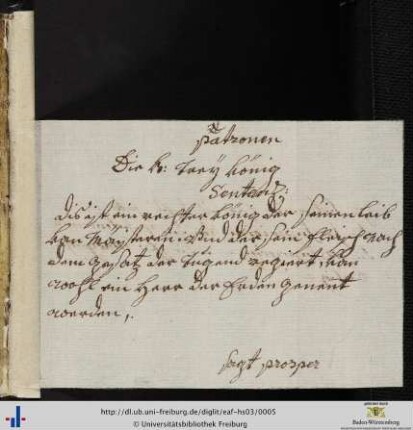 Patronen
Die h: Treÿ König
Sentenz:
dis ist ein rechter König der seinen leib
kan Maÿsteren: Und der sein fleisch nach
dem gesatz der Tugend regiert, kan
wohl ein Herr der Erden genent
werden,.
sagt prosper
http://dl.ub.uni-freiburg.de/diglit/eaf-hs03/0005
© Universitätsbibliothek Freiburg
Baden-Württemberg